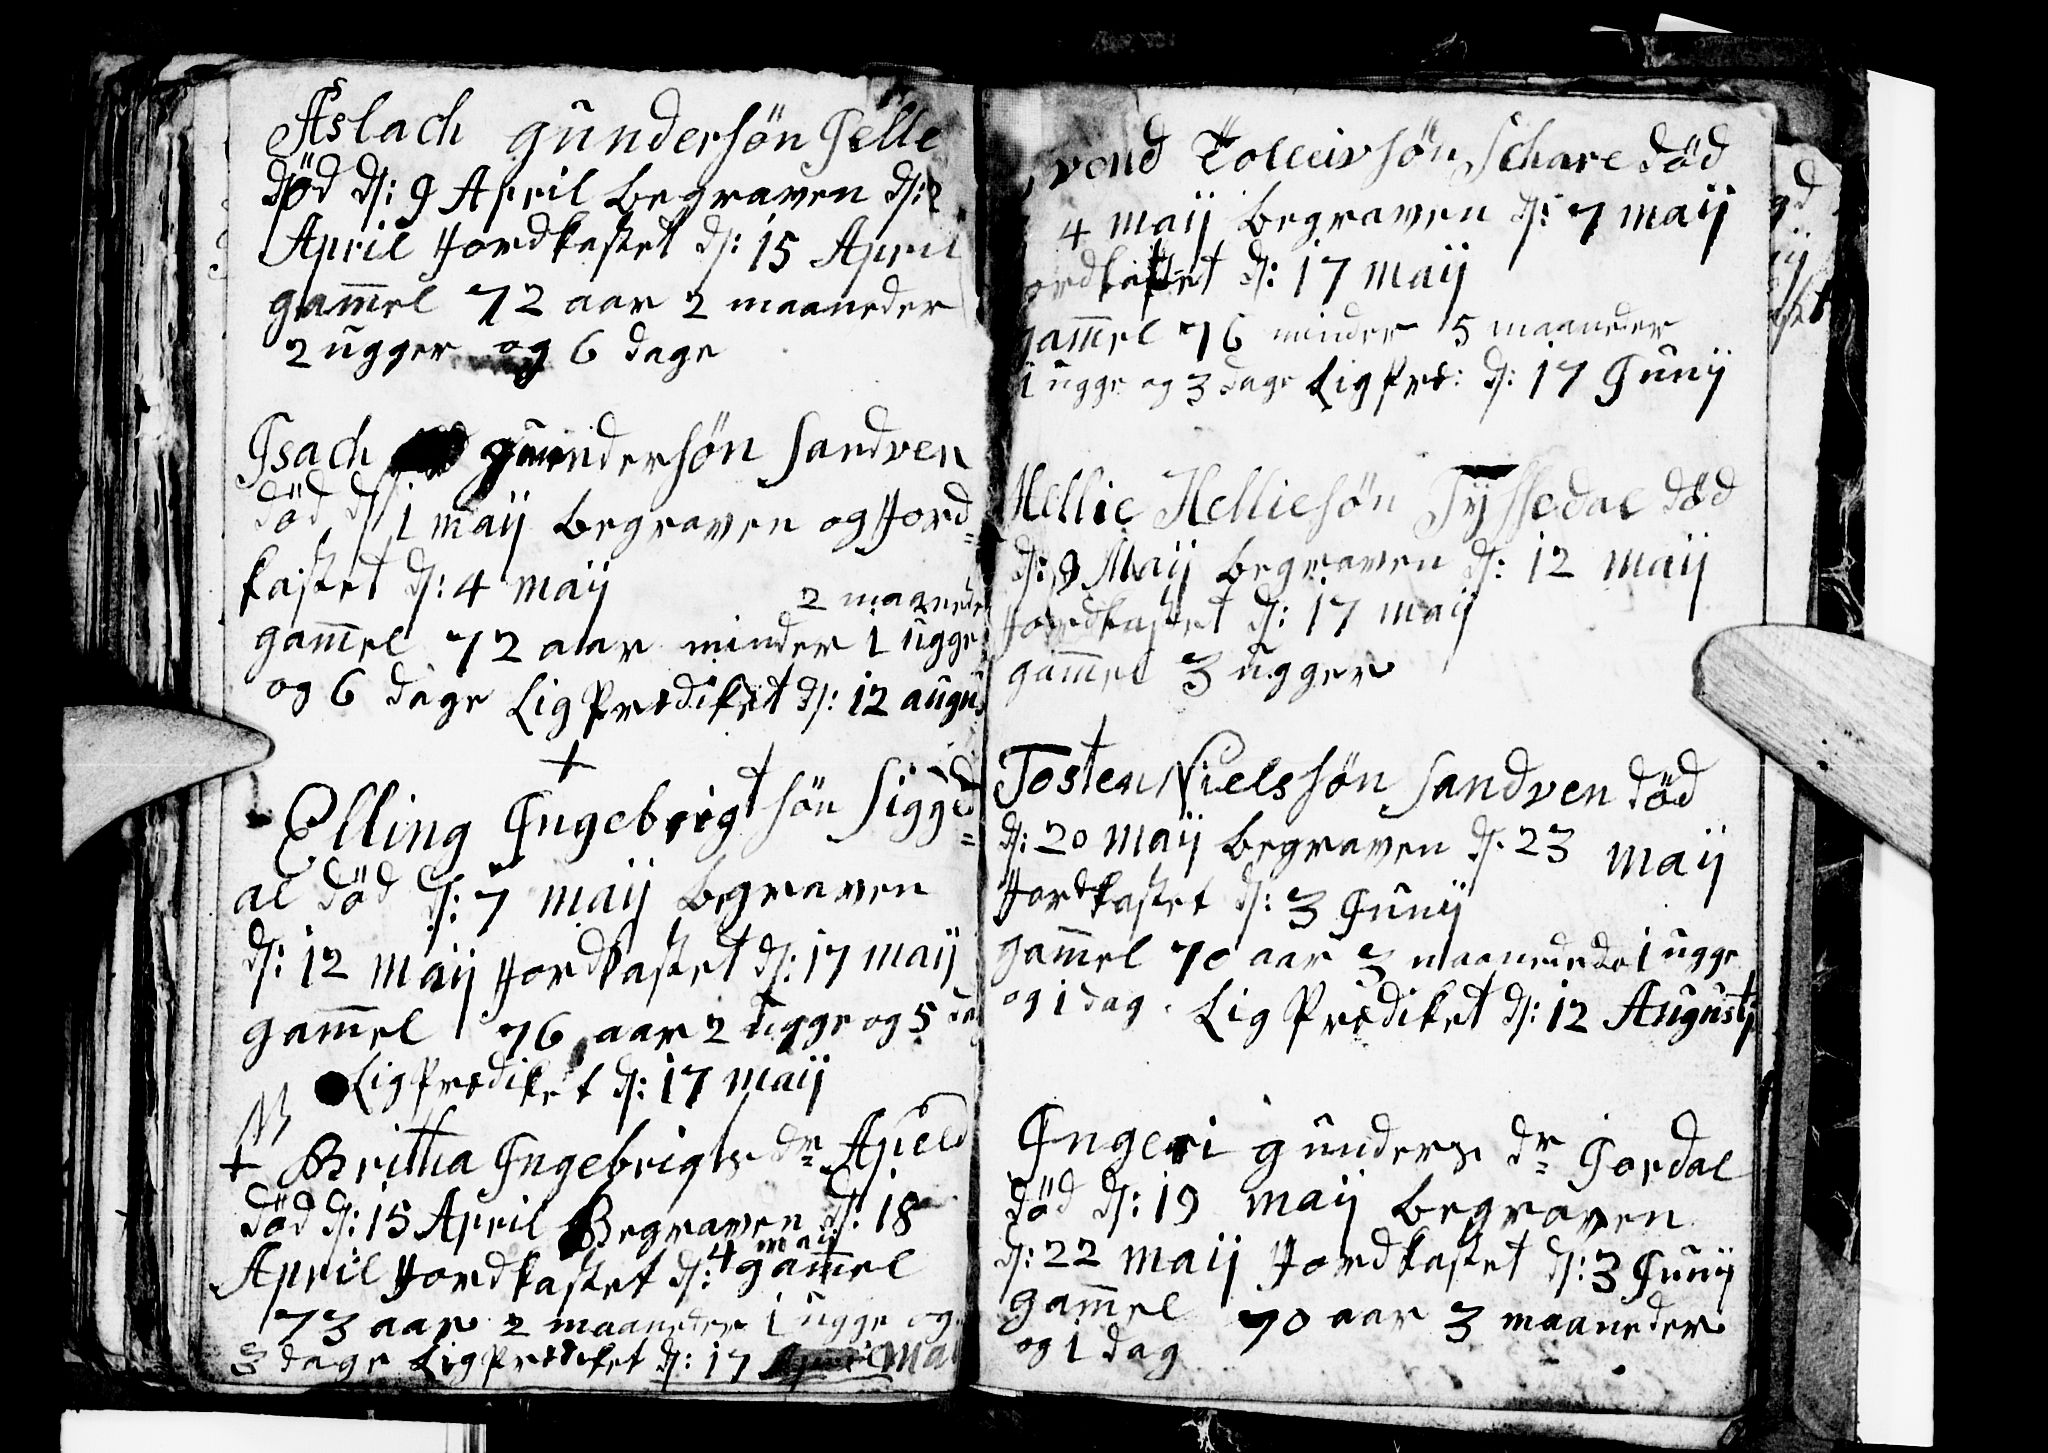 Aslach gundersön Jelle
död ds: 9 April begraven ds:
April Jordkastet ds: 15 April
gam̄el 72 aar 2 maaneder
2 ugger og 6 dage
Jsach gundersön Sandven
död ds 1 maij begraven og Jord=
kastet ds: 4 maij
2 maanede
gam̄el 72 aar minder 1 ugge
og 6 dage Lig Prediket ds: 12 augus
+
Elling Jngebrigtsön Sigge=
al död ds: 7 maij begraven
ds: 12 maij Jordkastet ds: 17 maij
gam̄el 76 aar 2 ugge og 5 da
Lig Prediket ds: 17 maij
+ Britha Jngebrigts dr Apeld
död ds: 15 April Begraven ds. 18
April Jordkastet ds: 4 maij gam̄el
73 aar 2 maaneder 1 ugge og
3 dage Lig Prediket ds: 17 Mai
vend Tolleivsön Schare död
4 maij begraven ds: 7 maij
ordkastet ds: 17 maij
gam̄el 76 minder 5 maaneder
1 ugge og 3 dage Lig Pre: ds: 17 Junij
Hellie Helliesön Tÿssedal död
ds: 9 Maij begraven ds: 12 maij
Jordkastet ds: 17 maij
gam̄el 3 ugger
Tosten Nielssön Sandven död
ds: 20 maij begraven ds. 23 maij
Jordkastet ds: 3 Junij
gam̄el 70 aar 3 maanede 1 ugge
og 1 dag. Lig Prediket ds: 12 Augustj
Jngeri gunders dr Jordal
död ds: 19 maij begraven
ds: 22 maij Jordkastet ds: 3 Junij
gam̄el 70 aar 3 maaneder
og 1 dag